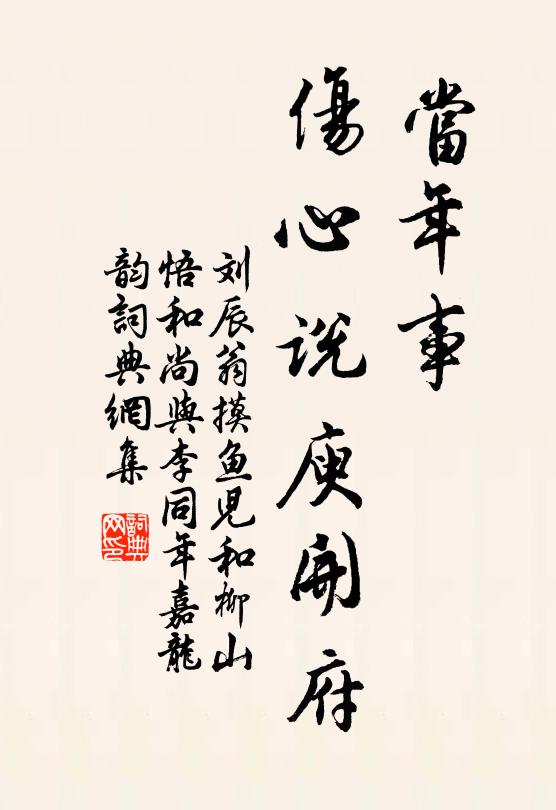 當年事
傷心说庾開府
刘辰翁摸鱼児和柳山
悟和尚與李同年嘉龍
韵詞典網集
詞典网印